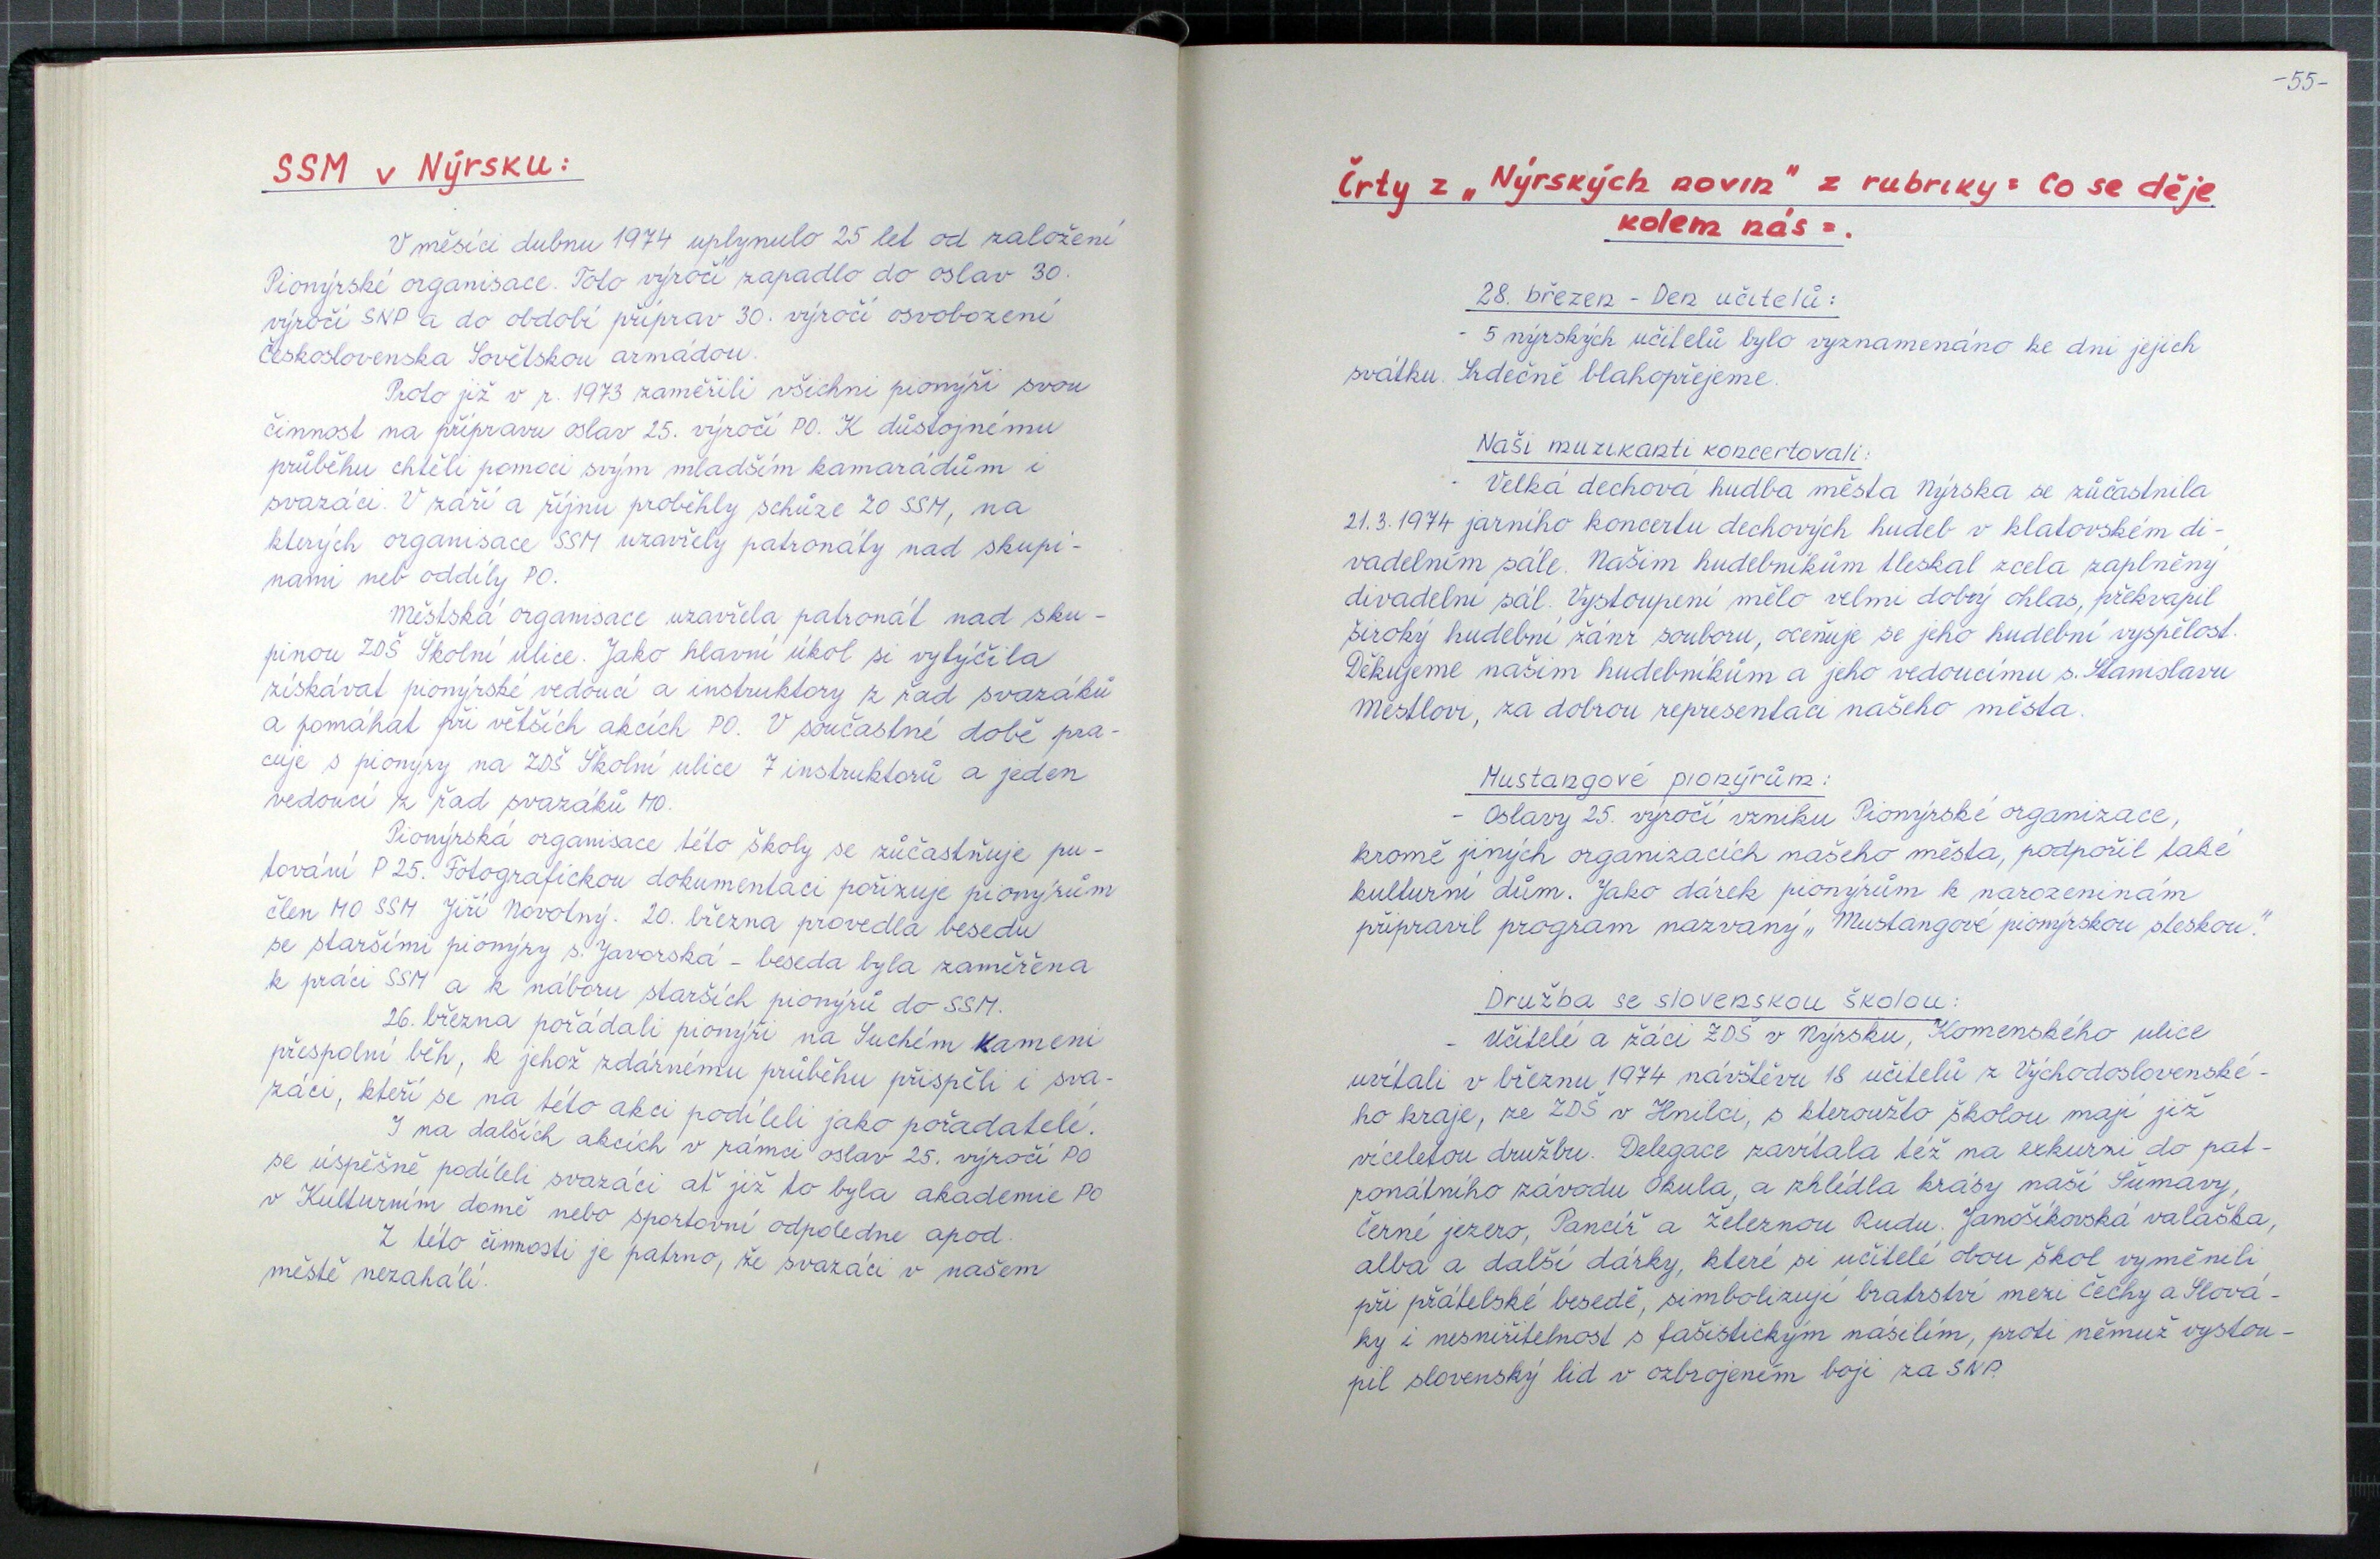 SSM v Nýrsku:
V měsíci dubnu 1974 uplynulo 25 let od založení
Pionýrské organisace. Toto výročí zapadlo do oslav 30.
výročí SNP a do období příprav 30. výročí osvobození
Československa Sovětskou armádou.
Proto již v r. 1973 zaměřili všichni pionýři svou
činnost na přípravu oslav 25. výročí PO. K důstojnému
průběhu chtěli pomoci svým mladším kamarádům i
svazáci. V září a říjnu proběhly schůze ZO SSM, na
kterých organisace SSM uzavřely patronáty nad skupi-
nami neb oddíly PO.
Městská organisace uzavřela patronát nad sku-
pinou ZDŠ Školní ulice. Jako hlavní úkol si vytýčila
získávat pionýrské vedoucí a instruktory z řad svazáků
a pomáhat při větších akcích PO. V součastné době pra-
cuje s pionýry na ZDŠ Školní ulice 7 instruktorů a jeden
vedoucí z řad svazáků MO.
Pionýrská organisace této školy se zůčastňuje pu-
tování P 25. Fotografickou dokumentaci pořizuje pionýrům
člen MO SSM Jiří Novotný. 20. března provedla besedu
se staršími pionýry s. Javorská - beseda byla zaměřěna
k práci SSM a k náboru starších pionýrů do SSM.
26. března pořádali pionýři na Suchém kameni
přespolní běh, k jehož zdárnému průběhu přispěli i sva-
záci, kteří se na této akci podíleli jako pořadatelé.
I na dalších akcích v rámci oslav 25. výročí PO
se úspěšně podíleli svazáci ať již to byla akademie PO
v Kulturním domě nebo sportovní odpoledne apod.
Z této činnosti je patrno, že svazáci v našem
městě nezahálí.
-55-
Črty z „Nýrských novin" z rubriky = Co se děje
kolem nás =.
28. březen - Den učitelů:
- 5 nýrských učitelů bylo vyznamenáno ke dni jejich
svátku. Srdečně blahopřejeme.
Naši muzikanti koncertovali:
- Velká dechová hudba města Nýrska se zůčastnila
21.3.1974 jarního koncertu dechových hudeb v klatovském di-
vadelním sále. Našim hudebníkům tleskal zcela zaplněný
divadelní sál. Vystoupení mělo velmi dobrý ohlas, překvapil
široký hudební žánr souboru, oceňuje se jeho hudební vyspělost.
Děkujeme našim hudebníkům a jeho vedoucímu s. Stanislavu
Mestlovi, za dobrou representaci našeho města.
Mustangové pionýrům:
- Oslavy 25. výročí vzniku Pionýrské organizace,
kromě jiných organizacích našeho města, podpořil také
kulturní dům. Jako dárek pionýrům k narozeninám
připravil program nazvaný „Mustangové pionýrskou steskou".
Družba se slovenskou školou:
- Učitelé a žáci ZDŠ v Nýrsku, Komenského ulice
uvítali v březnu 1974 návštěvu 18 učitelů z Východoslovenské-
ho kraje, ze ZDŠ v Hnilci, s kteroužto školou mají již
víceletou družbu. Delegace zavítala též na exkurzi do pat-
ronátního závodu Okula, a zhlédla krásy naší Šumavy,
Černé jezero, Pancíř a Železnou Rudu. Janošíkovská valaška,
alba a další dárky, které si učitelé obou škol vyměnili
při přátelské besedě, simbolizují bratrství mezi Čechy a Slová-
ky i nesmiřitelnost s fašistickým násilím, proti němuž vystou-
pil slovenský lid v ozbrojeném boji za SNP.